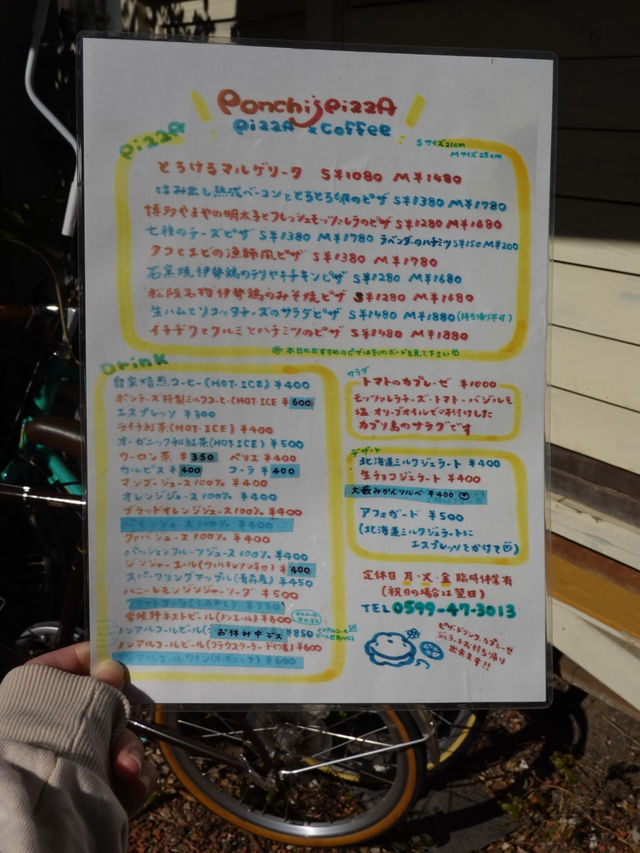 Ponchi's pizza
pizza & coffee
pizza
Sサイズ 21cm
Mサイズ 25cm
とろけるマルゲリータ S¥1080 M¥1480
はみ出し熟成ベーコンととろとろ卵のピザ S¥1380 M¥1780
博多やまやの明太子とフレッシュモッツァレラのピザ S¥1280 M¥1680
七種のチーズピザ S¥1380 M¥1780 ラベンダーのハチミツ S¥150 M¥200
タコとエビの漁師風ピザ S¥1380 M¥1780
石窯焼伊勢鶏のテリヤキチキンピザ S¥1280 M¥1680
松阪名物伊勢鶏のみそ焼ピザ S¥1280 M¥1680
生ハムとリコッタチーズのサラダピザ S¥1480 M¥1880 (持ち帰り不可)
イチヂクとクルミとハチミツのピザ S¥1480 M¥1880
本日のおすすめのピザは別のボードを見て下さい
Drink
自家焙煎コーヒー(HOT・ICE) ¥400
ポンチーズ特製ミルクコーヒー(HOT・ICE ¥600
エスプレッソ ¥300
ライチ紅茶(HOT・ICE) ¥400
オーガニック和紅茶(HOT・ICE) ¥500
ウーロン茶 ¥350 ペリエ ¥400
カルピス ¥400 コーラ ¥400
マンゴージュース100% ¥400
オレンジジュース100% ¥400
ブラッドオレンジジュース100% ¥400
パインジュース100% ¥400
グァバジュース100% ¥400
パッションフルーツジュース100% ¥400
ジンジャーエール(ウィルキンソン辛口) ¥400
スパークリングアップル(青森産) ¥450
ハニーレモンジンジャーソーダ ¥500
¥550
常陸野ネストビール(ノンエール) ¥600
ノンアルコールビール お休み中デス ¥850
ノンアルコールビール(ブラウスターラードイツ産) ¥600
ノンアルコールワイン(オーガニック) ¥600
サラダ
トマトのカプレーゼ ¥1000
モッツァレラチーズ・トマト・バジルを
塩・オリーブオイルで味付けした
カプリ島のサラダです
デザート
北海道ミルクジェラート ¥400
生チョコジェラート ¥400
大薮みかんソルベ ¥400
アフォガード ¥500
(北海道ミルクジェラートに
エスプレッソをかけて)
定休日 月・火・金 臨時休業有
(祝日の場合は翌日)
TEL 0599-47-3013
ピザ・ドリンク・カプレーゼ
ジェラートお持ち帰り
出来ます!!